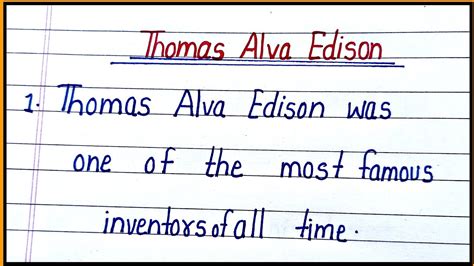 Thomas Alva Edison
1. Thomas Alva Edison was
one of the most famous
inventors of all time.